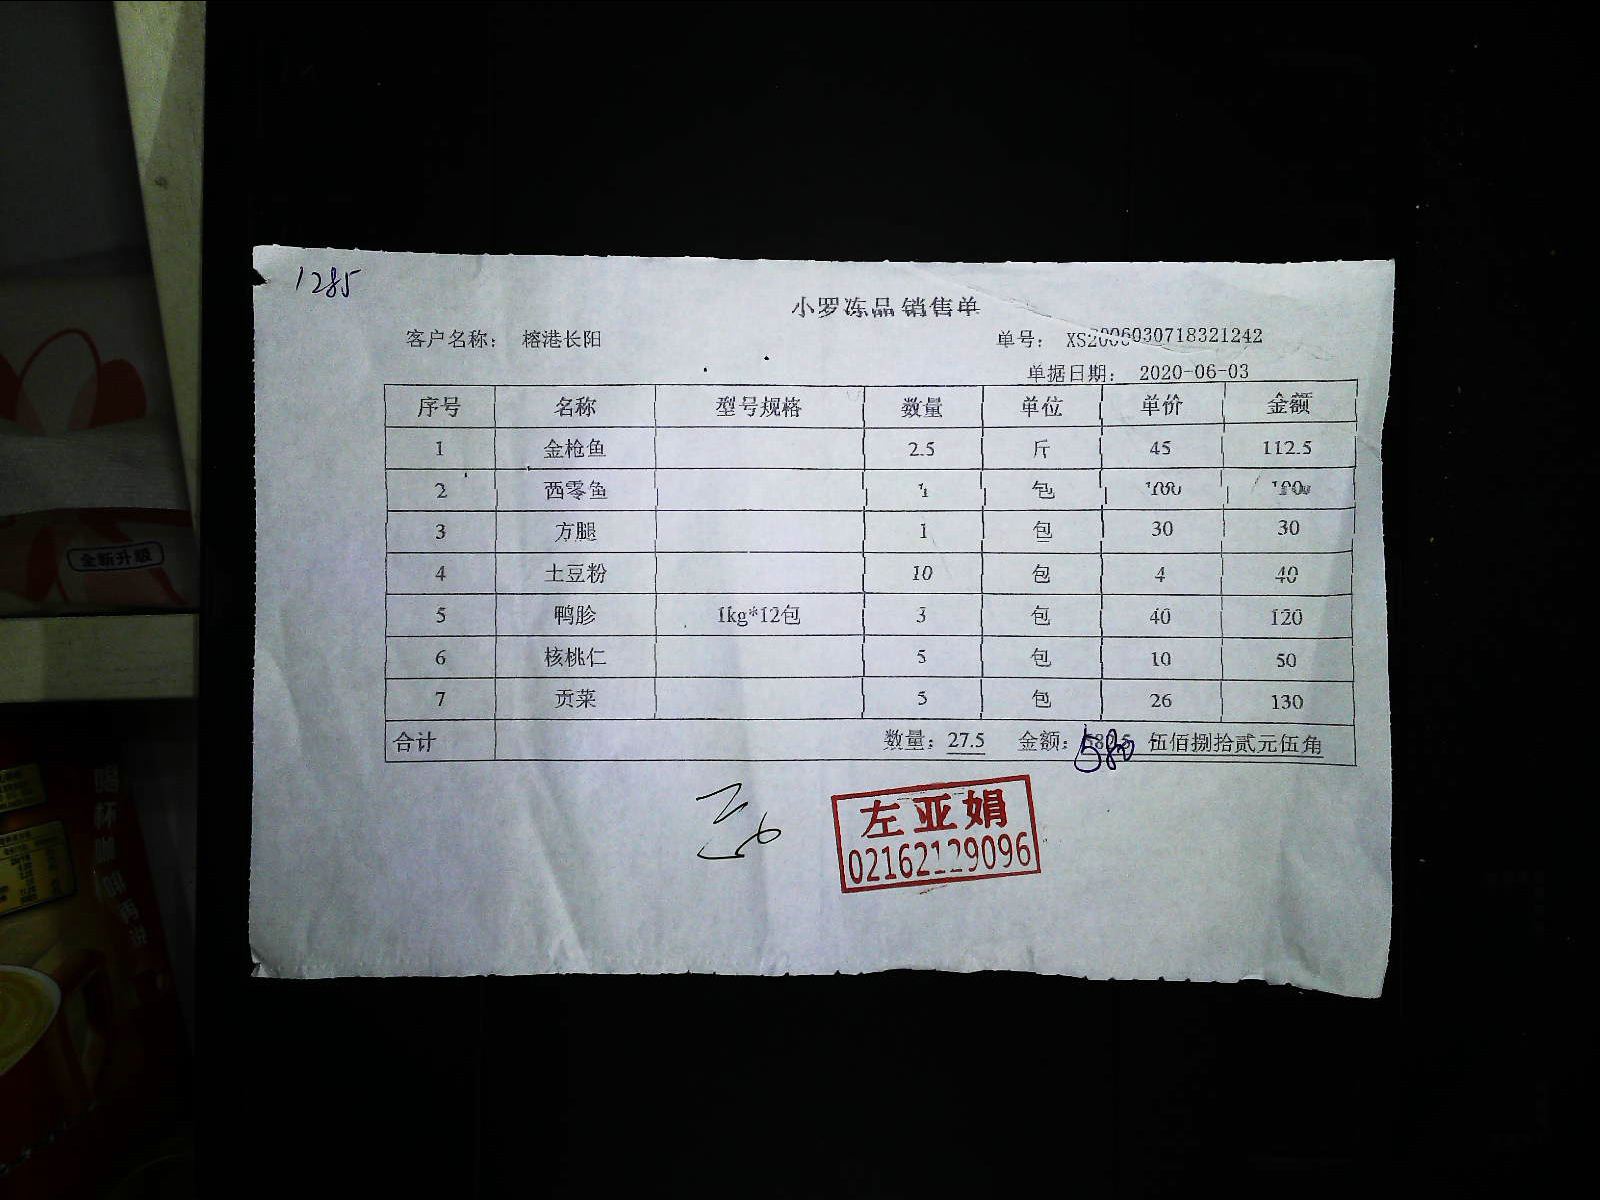 1285
小罗冻品 销售单
客户名称： 榕港长阳 单号： XS2006030718321242
单据日期： 2020-06-03
序号 名称 型号规格 数量 单位 单价 金额
1 金枪鱼 2.5 斤 45 112.5
2 西零鱼 1 包 100 100
3 方腿 1 包 30 30
4 土豆粉 10 包 4 40
5 鸭胗 1kg*12包 3 包 40 120
6 核桃仁 5 包 10 50
7 贡菜 5 包 26 130
合计 数量：27.5 金额： 580 伍佰捌拾贰元伍角
左亚娟
02162129096
全新升级
喝杯咖啡再说